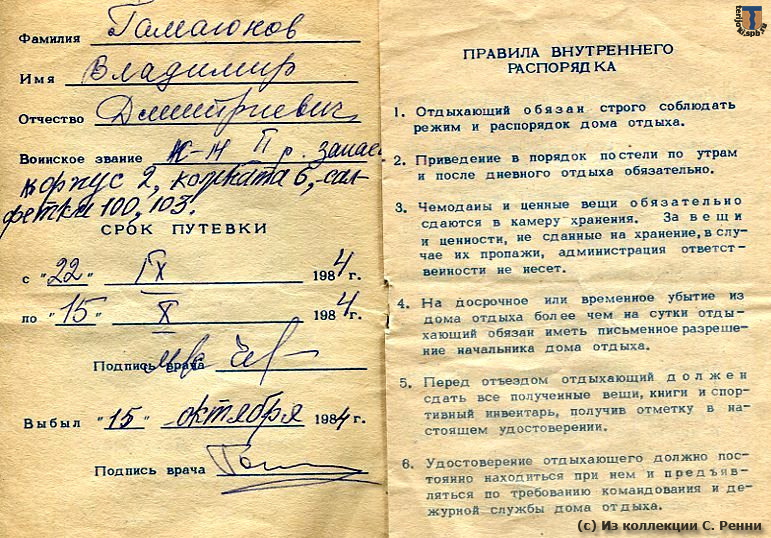 Фамилия Гамаюнов
Имя Владимир
Отчество Дмитриевич
Воинское звание к-н II р. запаса
корпус 2, комната 6, сал-
фетки 100, 103.
СРОК ПУТЕВКИ
с "22" IX 1984 г.
по "15" X 1984 г.
Подпись врача
Выбыл "15" октября 1984 г.
Подпись врача
ПРАВИЛА ВНУТРЕННЕГО
РАСПОРЯДКА
1. Отдыхающий обязан строго соблюдать
режим и распорядок дома отдыха.
2. Приведение в порядок постели по утрам
и после дневного отдыха обязательно.
3. Чемоданы и ценные вещи обязательно
сдаются в камеру хранения. За вещи
и ценности, не сданные на хранение, в слу-
чае их пропажи, администрация ответст-
венности не несет.
4. На досрочное или временное убытие из
дома отдыха более чем на сутки отды-
хающий обязан иметь письменное разреше-
ние начальника дома отдыха.
5. Перед отъездом отдыхающий должен
сдать все полученные вещи, книги и спор-
тивный инвентарь, получив отметку в на-
стоящем удостоверении.
6. Удостоверение отдыхающего должно пос-
тоянно находиться при нем и предъяв-
ляться по требованию командования и де-
журной службы дома отдыха.
terijoki.spb.ru
(c) Из коллекции С. Ренни